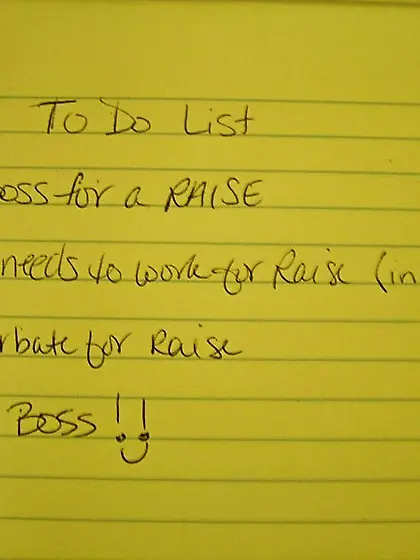 To Do List
oss for a RAISE
needs to work for Raise (in
rbate for Raise
Boss !!